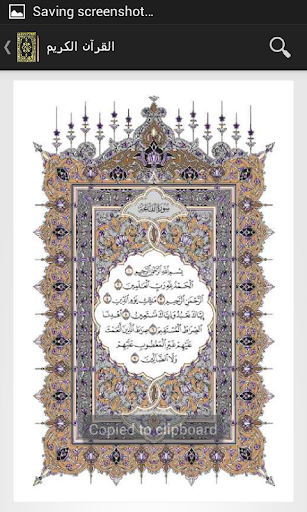 Saving screenshot...
القرآن الكريم
سورة الفاتحة
بسم الله الرحمن الرحيم ١
الحمد لله رب العالمين ٢
الرحمن الرحيم ٣ مالك يوم الدين ٤
إياك نعبد وإياك نستعين ٥ اهدنا
الصراط المستقيم ٦ صراط الذين أنعمت
عليهم غير المغضوب عليهم
ولا الضالين ٧
Copied to clipboard